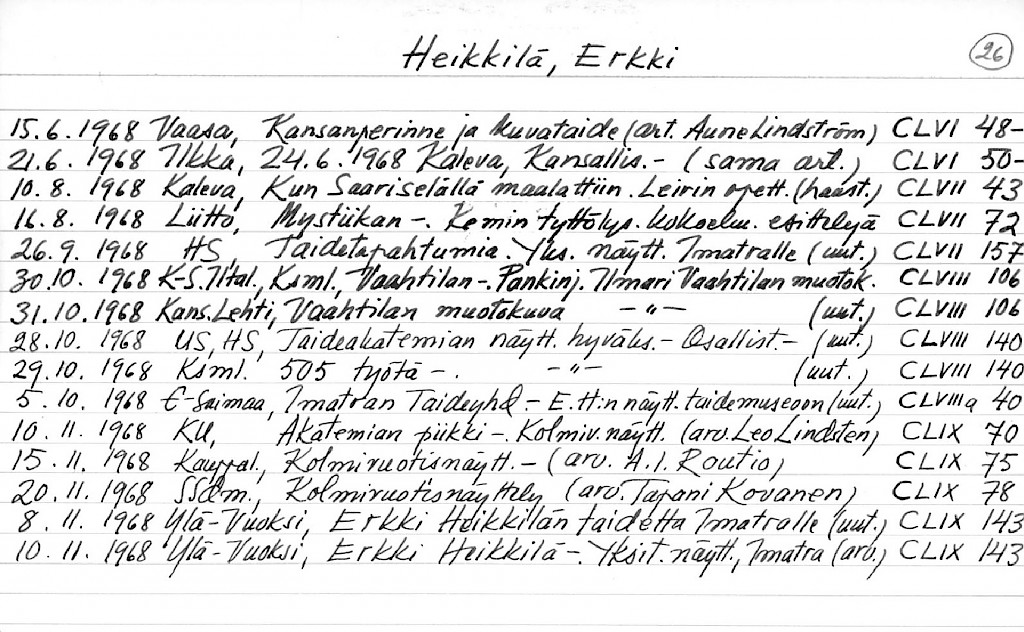 Heikkilä, Erkki 26
15.6.1968 Vaasa, Kansanperinne ja kuvataide (art. Aune Lindström) CLVI 48-
21.6.1968 Ilkka, 24.6.1968 Kaleva, Kansallis.- (sama art.) CLVI 50-
10.8.1968 Kaleva, Kun Saariselällä maalattiin. Leirin opett. (haast.) CLVII 43
16.8.1968 Liitto, Mystiikan -. Kemin tyttölys. kokoelm. esittelyä CLVII 72
26.9.1968 HS, Taidetapahtumia. Yks. näytt. Imatralle (uut.) CLVII 157
30.10.1968 K-S. Iltal., Ksml., Vaahtilan -. Pankinj. Ilmari Vaahtilan muotok. CLVIII 106
31.10.1968 Kans. Lehti, Vaahtilan muotokuva -"- (uut.) CLVIII 106
28.10.1968 US, HS, Taideakatemian näytt. hyväks.- Osallist.- (uut.) CLVIII 140
29.10.1968 Ksml. 505 työtä -. -"- (uut.) CLVIII 140
5.10.1968 E-Saimaa, Imatran Taideyhd.- E. H:n näytt. taidemuseoon (uut.) CLVIIIa 40
10.11.1968 KU, Akatemian piikki -. Kolmiv. näytt. (arv. Leo Lindsten) CLIX 70
15.11.1968 Kauppal., Kolmivuotisnäytt.- (arv. A.I. Routio) CLIX 75
20.11.1968 SSdm., Kolmivuotisnäyttely (arv. Tapani Kovanen) CLIX 78
8.11.1968 Ylä-Vuoksi, Erkki Heikkilän taidetta Imatralle (uut.) CLIX 143
10.11.1968 Ylä-Vuoksi, Erkki Heikkilä -. Yksit. näytt., Imatra (arv.) CLIX 143